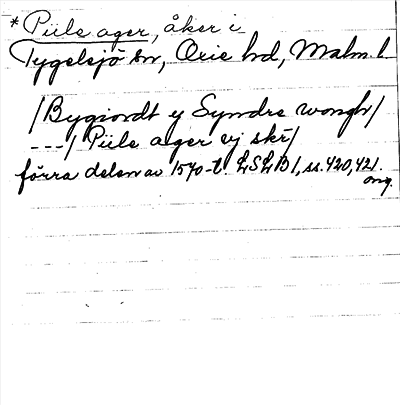 *Piile ager, åker i
Tygelsjö sn, Oxie hd, Malm. l.
/Bygiordt y Syndre wongh/
---/ Piile ager vj skr/
förra delen av 1570-t. LSLB1, ss. 420, 421.